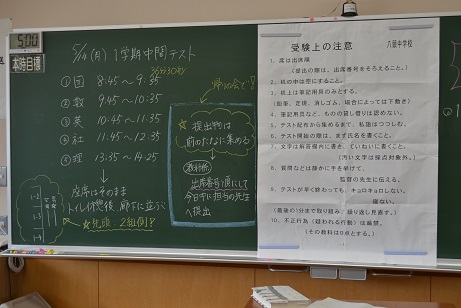 5:00
本時目標
5/14(月) 1学期中間テスト
①国 8:45〜9:35
②数 9:45〜10:35
③英 10:45〜11:35
④社 11:45〜12:35
⑤理 13:35〜14:25
座席はそのまま
トイレ休憩後、廊下に並ぶ
☆先頭 2組側!
1-2
1-3
1-4
帰りの会で!
☆提出物は
前のたなに集める
教科係
出席番号順にして
今日中に担当の先生
へ提出
受験上の注意
八景中学校
1、席は出席順
(提出の際は、出席番号をそろえること。)
2、机の中は空にすること。
3、机上は筆記用具のみとする。
(鉛筆、定規、消しゴム、場合によっては下敷き)
4、筆記用具など、ものの貸し借りは認めない。
5、テスト配布から集めるまで、私語はつつしむ。
6、テスト開始の際は、まず氏名を書くこと。
7、文字は解答欄内に書き、ていねいに書くこと。
(汚い文字は採点対象外。)
8、質問などは静かに手を挙げて、
監督の先生に伝える。
9、テストが早く終わっても、キョロキョロしない。
寝ない。
(最後の1分まで取り組み、繰り返し見直す。)
10、不正行為(疑われる行動)は厳禁。
(その教科は0点とする。)